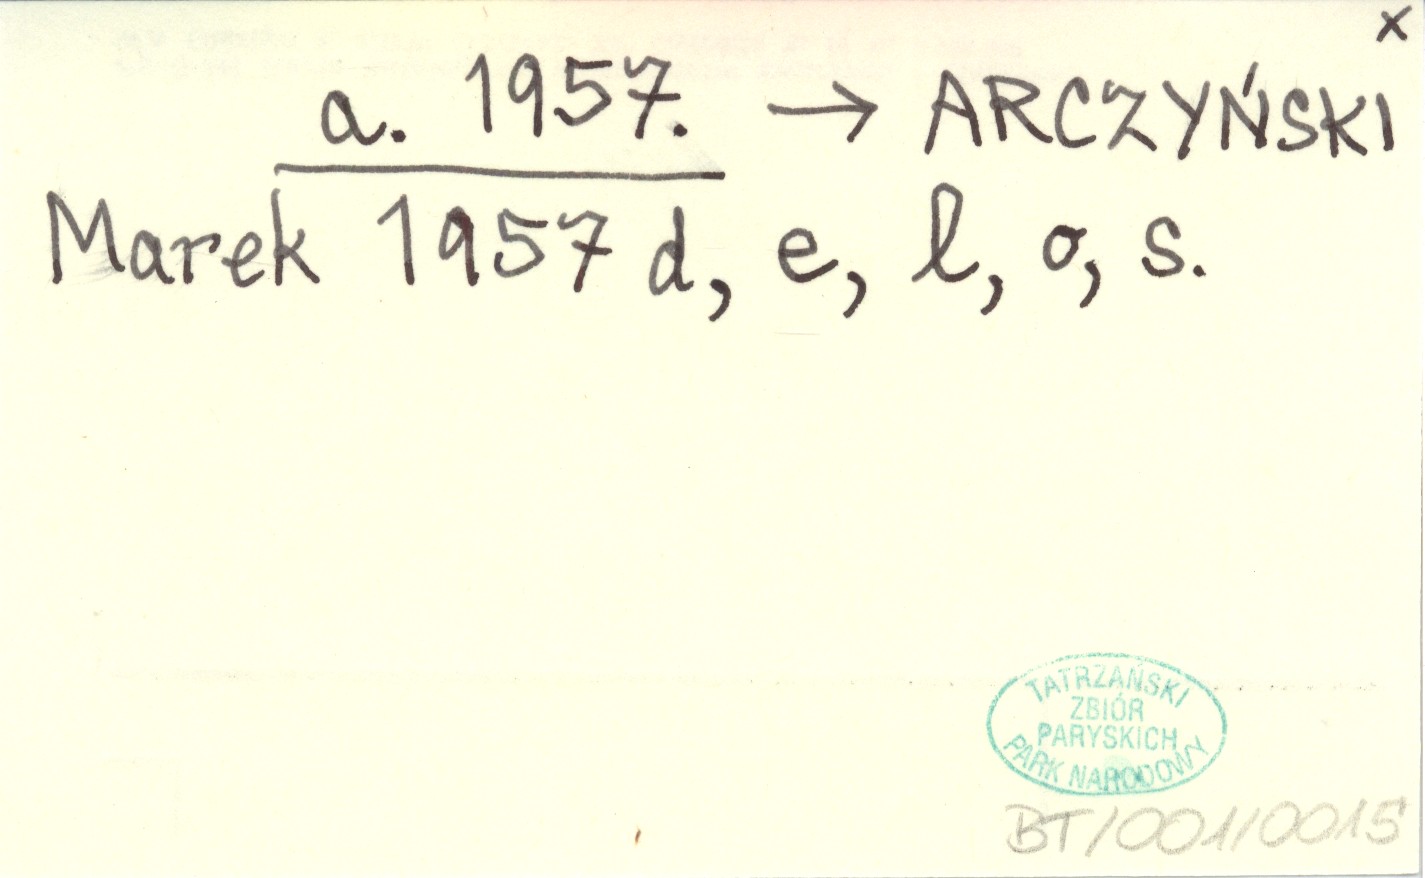 x
a. 1957. → ARCZYŃSKI
Marek 1957 d, e, l, o, s.
TATRZAŃSKI
ZBIÓR
PARYSKICH
PARK NARODOWY
BT/001/0015